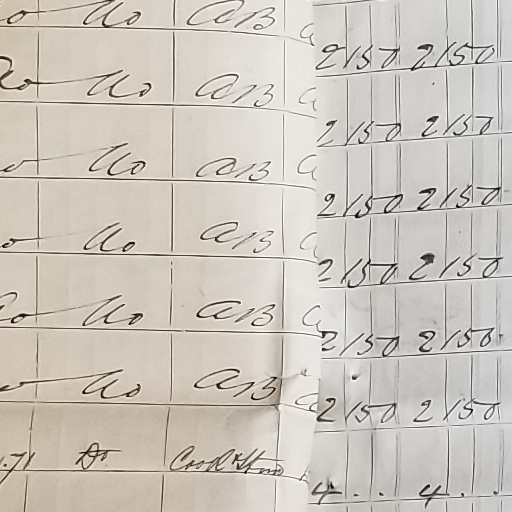 do do AB 2150 2150
do do AB 2150 2150
do do AB 2150 2150
do do AB 2150 2150
do do AB 2150 2150
do do AB 2150 2150
.71 Do 4 . . 4 . .